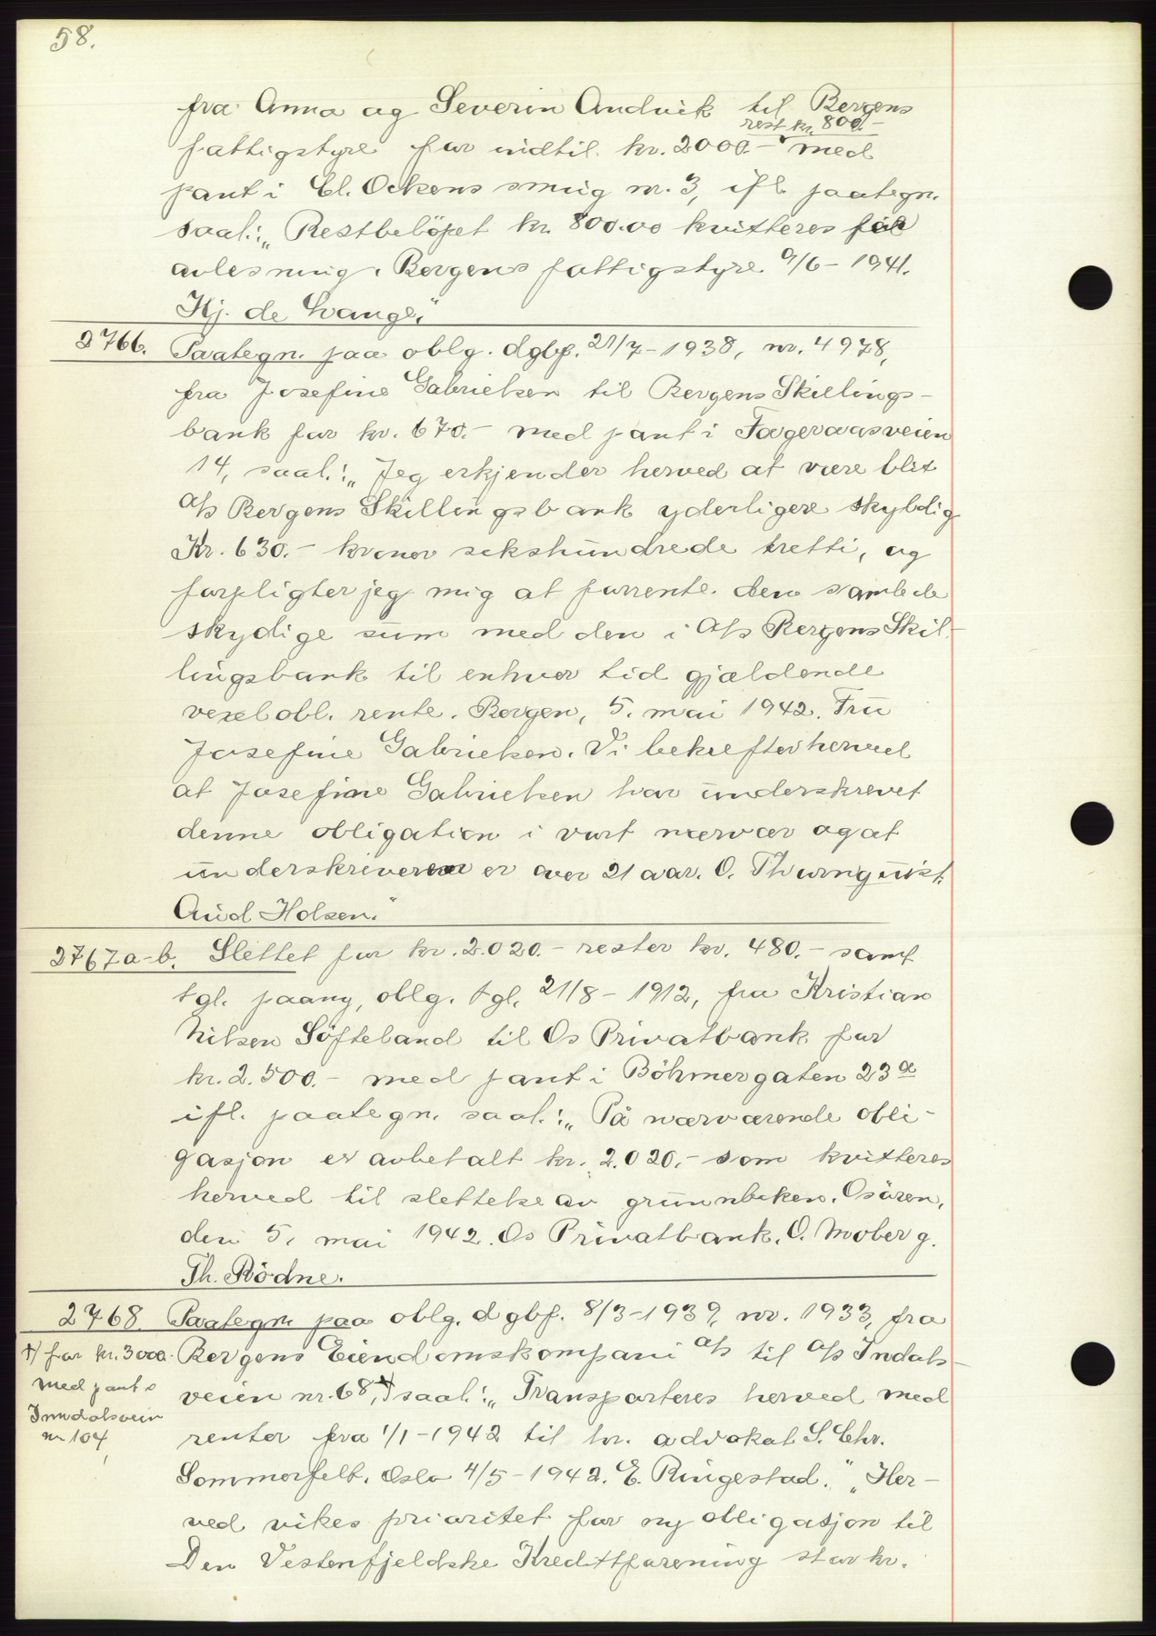 58.
fra Anna og Severin Andvik til Bergens
rest kr. 800.-
fattigstyre for indtil kr. 2000.- med
pant i Cl. Ockens smug nr. 3, ifl. paategn.
saal.: „Restbelöpet kr. 800.00 kvitteres for
avlesning. Bergens fattigstyre 9/6-1941.
Hj. de Svange."
2766. Paategn. paa oblg. dgbf. 21/7-1938, nr. 4978,
fra Josefine Gabrielsen til Bergens Skillings-
bank for kr. 670.- med pant i Fageraasveien
14, saal.: „Jeg erkjender herved at være blit
A/s Bergens Skillingsbank yderligere skyldig
Kr. 630.- kroner sekshundrede tretti, og
forpligter jeg mig at forrente den samlede
skydige sum med den i A/s Bergens Skil-
lingsbank til enhver tid gjældende
vexelobl. rente. Bergen, 5. mai 1942. Fru
Josefine Gabrielsen. Vi bekrefter herved
at Josefine Gabrielsen har underskrevet
denne obligation i vort nærvær og at
underskriveren er over 21 aar. O. Thurnquist.
Aud Holsen."
2767a-b. Slettet for kr. 2.020.- rester kr. 480.- samt
tgl. paany, oblg. tgl. 21/8-1912, fra Kristian
Nilsen Söfteland til Os Privatbank for
kr. 2.500.- med pant i Böhmergaten 23a
ifl. paategn. saal.: „På nærværende obli-
gasjon er avbetalt kr. 2.020.- som kvitteres
herved til slettelse av grunnboken. Osören,
den 5. mai 1942. Os Privatbank. O. Moberg.
Th. Rödne.
2768. Paategn. paa oblg. dgbf. 8/3-1939, nr. 1933, fra
Bergens Eiendomskompani A/s til A/s Indals-
veien nr. 68, saal.: „Transporteres herved med
renter fra 1/1-1942 til hr. advokat S. Chr.
Sommerfelt. Oslo 4/5-1942. E. Ringestad." „Her-
ved vikes prioritet for ny obligasjon til
Den Vestenfjeldske Kredittforening stor kr.
for kr. 3000.
med pant i
Inndalsveien
nr 104